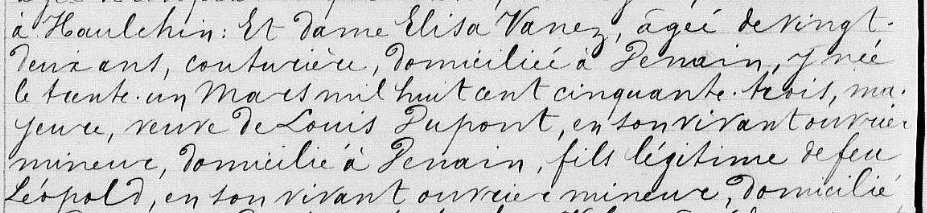 à Haulchin: Et dame Elisa Vanez, âgée de vingt-
deux ans, couturière, domiciliée à Denain, y née
le trente-un Mars mil huit cent cinquante-trois, ma-
jeure, veuve de Louis Dupont, en son vivant ouvrier
mineur, domicilié à Denain, fils légitime de feu
Léopold, en son vivant ouvrier mineur, domicilié